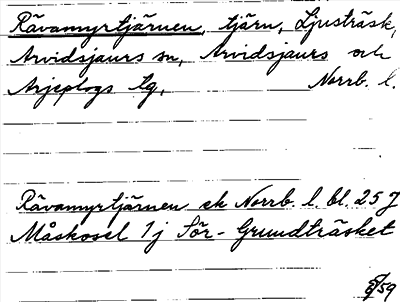 Rävamyrtjärnen, tjärn, Ljusträsk,
Arvidsjaurs sn, Arvidsjaurs och
Arjeplogs tg, Norrb. l.
Rävamyrtjärnen ek Norrb. l. bl. 25 J
Måskosel 1 j Sör-Grundträsket
59